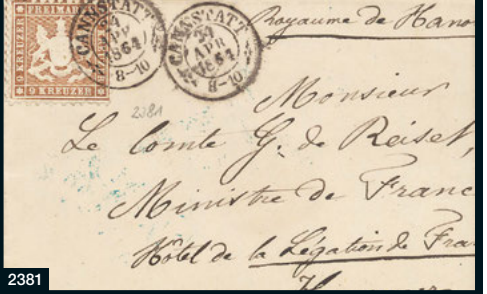 FREIMARKE
KREUZER
KREUZER
9 KREUZER
CANNSTATT
24
APR
1864
8-10
CANNSTATT
24
APR
1864
8-10
Royaume de Hano
2381
Monsieur
Le Comte G. de Reiset,
Ministre de Franc
Hôtel de la Légation de Fra
2381